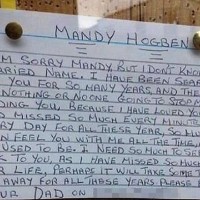 MANDY HOGBEN
I'M SORRY MANDY, BUT I DON'T KNOW
MARRIED NAME. I HAVE BEEN
YOU FOR SO MANY YEARS, AND THE
NOTHING OR NO ONE GOING TO STOP M
BECAUSE I HAVE LOVED YO
D MISSED SO MUCH EVERY MINUTE
RY DAY FOR ALL THESE YEAR, SO MU
N FEEL YOU WITH ME ALL THE TIME,
USED TO BE. I NEED SO MUCH TO
TO YOU, AS I HAVE MISSED SO MUCH
R LIFE, PERHAPS IT WILL TAKE SOME
AWAY FOR ALL THESE YEARS PLEASE
UR DAD ON